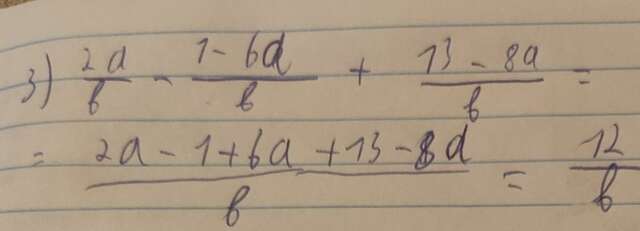 3) 2a/b - 1-6a/b + 13-8a/b =
= 2a-1+6a+13-8a/b = 12/b